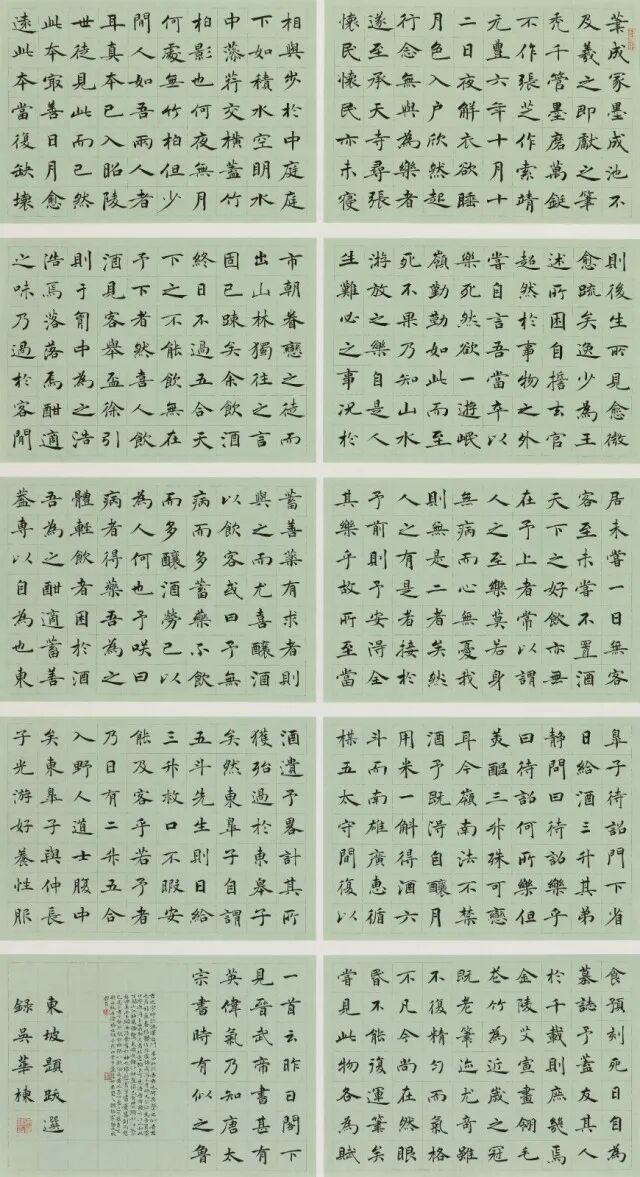 筆成冢墨成池不
及羲之即獻之筆
禿千管墨磨萬鋌
不作張芝作索靖
元豐六年十月十
二日夜解衣欲睡
月色入户欣然起
行念無與為樂者
遂至承天寺尋張
懷民懷民亦未寢
相與步於中庭庭
下如積水空明水
中藻荇交橫蓋竹
柏影也何夜無月
何處無竹柏但少
閒人如吾兩人者
耳真本已入昭陵
世徒見此而已然
此本冣善日月愈
遠此本當復缺壞
則後生所見愈微
愈疏矣逸少為王
述所困自誓去官
超然於事物之外
嘗自言吾當卒以
樂死然欲一遊岷
嶺勤勤如此而至
死不果乃知山水
游放之樂自是人
生難必之事況於
市朝眷戀之徒而
出山林獨往之言
固已踈矣余飲酒
終日不過五合天
下之不能飲無在
予下者然喜人飲
酒見客舉盃徐引
則予胷中為之浩
浩焉落落焉酣適
之味乃過於客閒
居未嘗一日無客
客至未嘗不置酒
天下之好飲亦無
在予上者常以謂
人之至樂莫若身
無病而心無憂我
則無是二者矣然
人之有是者接於
予前則予安得全
其樂乎故所至當
蓄善藥有求者則
與之而尤喜釀酒
以飲客或曰予無
病而多蓄藥不飲
而多釀酒勞己以
為人何也予咲曰
病者得藥吾為之
體輕飲者困於酒
吾為之酣適蓄善
葢專以自為也東
皐子待詔門下省
日給酒三升其弟
靜問曰待詔樂乎
曰待詔何所樂但
美醞三升殊可戀
耳今嶺南法不禁
酒予既得自釀月
用米一斛得酒六
斗而南雄廣惠循
楳五太守間復以
酒遺予畧計其所
獲殆過於東皐子
矣然東皐子自謂
五斗先生則日給
三升救口不暇安
能及客乎若予者
乃日有二升五合
入野人道士腹中
矣東皐子與仲長
子光游好養性服
食預刻死日自為
墓誌予蓋友其人
於千載則庶幾焉
金陵艾宣畫翎毛
花竹為近歲之冠
既老筆迹尤奇雖
不復精匀而氣格
不凡今尚在然眼
昏不能復運筆矣
嘗見此物各為賦
一首云昨日閣下
見晉武帝書甚有
英偉氣乃知唐太
宗書時有似之魯
東坡題跋選
錄吳華棟